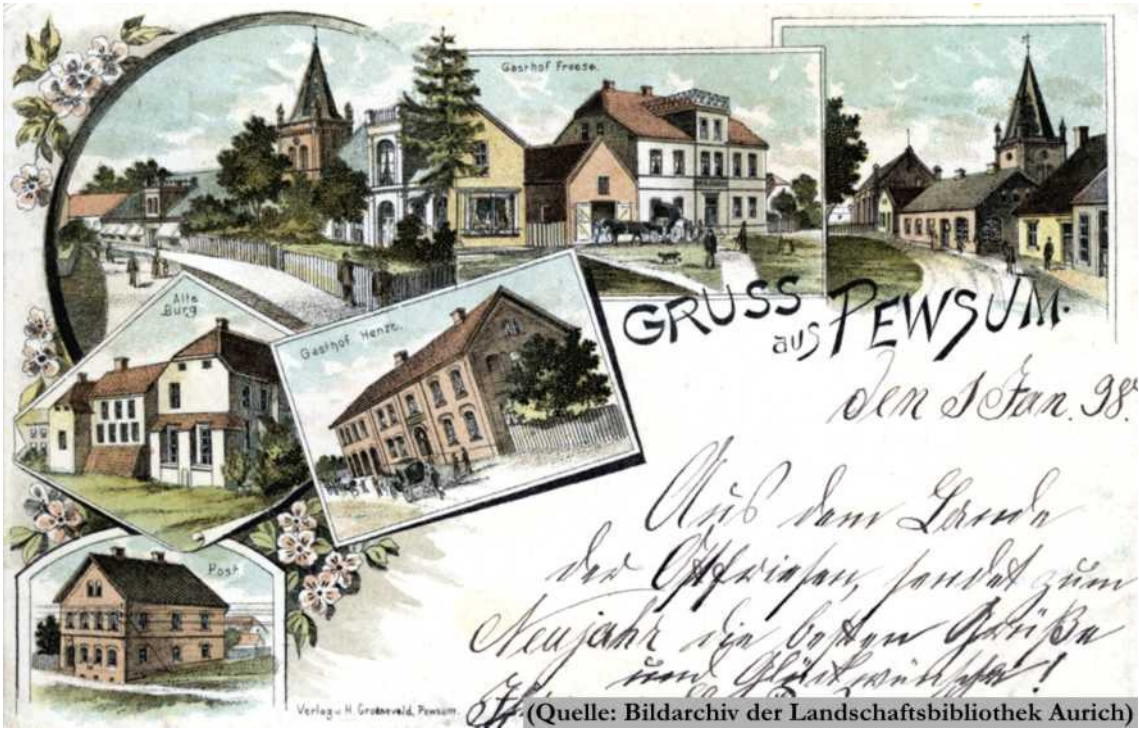 Gasthof Freese.
GRUSS
aus PEWSUM.
Alte
Burg
Gasthof Henze.
Post
den 1 Jan. 98.
Aus dem Lande
der Ostfriesen, sendet zum
Neujahr die besten Grüße
und Glückwünsche!
Verlag v. H. Groeneveld, Pewsum.
(Quelle: Bildarchiv der Landschaftsbibliothek Aurich)